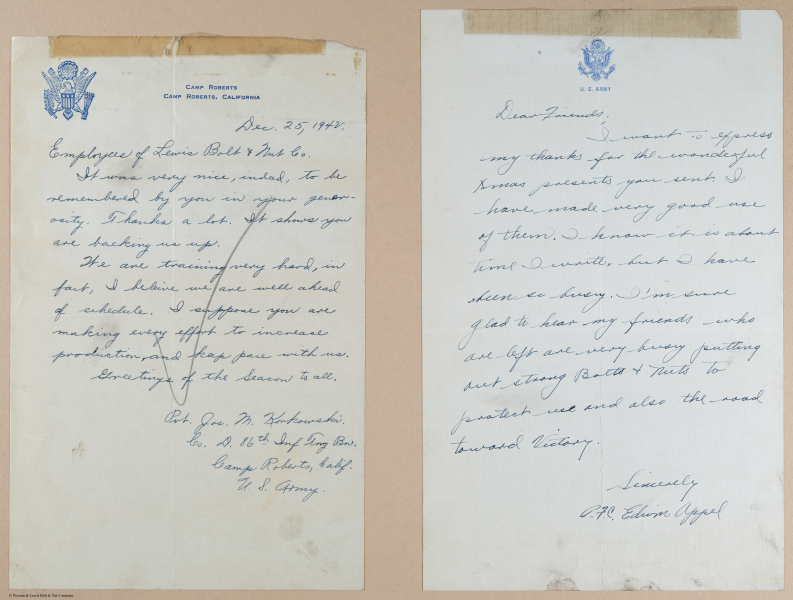 CAMP ROBERTS
CAMP ROBERTS, CALIFORNIA
Dec. 25, 1942.
Employees of Lewis Bolt & Nut Co.
It was very nice, indad, to be
remembered by you in your gener-
osity. Thanks a lot. It shows you
are backing us up.
We are training very hard, in
fact, I beleive we are well ahead
of schedule. I suppose you are
making every effort to increase
production, and keep pace with us.
Greetings of the Season to all.
Pvt. Jos. M. Korkowski.
Co. D. 86th Inf Tng Bn.
Camp Roberts, Calif.
U. S. Army.
U. S. ARMY
Dear Friends,
I want to express
my thanks for the wonderful
Xmas presents you sent. I
have made very good use
of them. I know it is about
time I write, but I have
been so busy. I'm sure
glad to hear my friends who
are left are very busy putting
out strong Bolts & Nuts to
protect use and also the road
toward Victory.
Sincerely
P.F.C. Edwin Appel